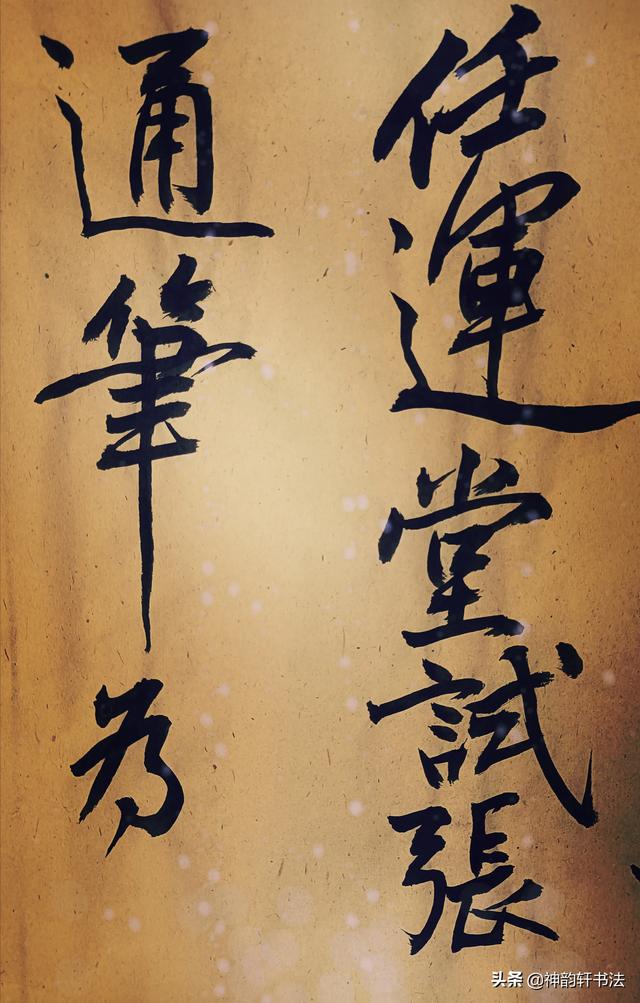 任運堂試張
通筆為
头条 @神韵轩书法